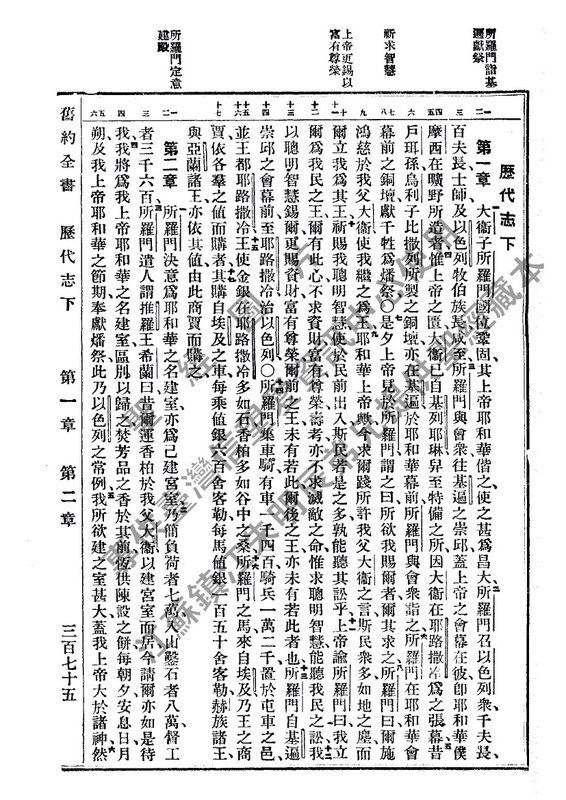 所羅門詣基遍獻祭
祈求智慧
上帝更錫以富有尊榮
所羅門定意建殿
歷代志下
第一章 大衛子所羅門國位鞏固其上帝耶和華偕之使之甚爲昌大所羅門召以色列衆千夫長
百夫長士師及以色列牧伯族長咸至所羅門與會衆往基遍之崇邱蓋上帝之會幕在彼卽耶和華僕
摩西在曠野所造者惟上帝之匱大衛已自基列耶琳舁至特備之所因大衛在耶路撒冷爲之張幕昔
戶珥孫烏利子比撒列所製之銅壇亦在基遍於耶和華幕前所羅門與會衆詣之所羅門在耶和華會
幕前之銅壇獻千牲爲燔祭○是夕上帝見於所羅門謂之曰所欲我賜爾者爾其求之所羅門曰爾施
鴻慈於我父大衛使我繼之爲王耶和華上帝歟今求爾踐所許我父大衛之言斯民衆多如地之塵而
爾立我爲其王祈賜我聰明智慧使於民前出入斯民若是之多孰能聽其訟乎上帝諭所羅門曰我立
爾爲我民之王爾有此心不求貲財富有尊榮壽考亦不求滅敵之命惟求聰明智慧能聽我民之訟我
以聰明智慧錫爾更賜貲財富有尊榮爾前之王未有若此爾後之王亦未有若此者也所羅門自基遍
崇邱之會幕前至耶路撒冷治以色列○所羅門集車騎有車一千四百騎兵一萬二千置於屯車之邑
並王都耶路撒冷王使金銀在耶路撒冷多如石香柏多如谷中之桑所羅門之馬來自埃及乃王之商
賈依各羣之值而購者其購自埃及之車每乘值銀六百舍客勒每馬值銀一百五十舍客勒赫族諸王
與亞蘭諸王亦依其值由此商賈而購之
第二章 所羅門決意爲耶和華之名建室亦爲己建宮室乃簡負荷者七萬入山鑿石者八萬督工
者三千六百所羅門遣人謂推羅王希蘭曰昔爾運香柏於我父大衛以建宮室而居今請爾亦如是待
我我將爲我上帝耶和華之名建室區別以歸之焚芳品之香於其前恆供陳設之餅每朝夕安息日月
朔及我上帝耶和華之節期奉獻燔祭此乃以色列之常例我所欲建之室甚大蓋我上帝大於諸神然
舊約全書 歷代志下 第一章 第二章 三百七十五